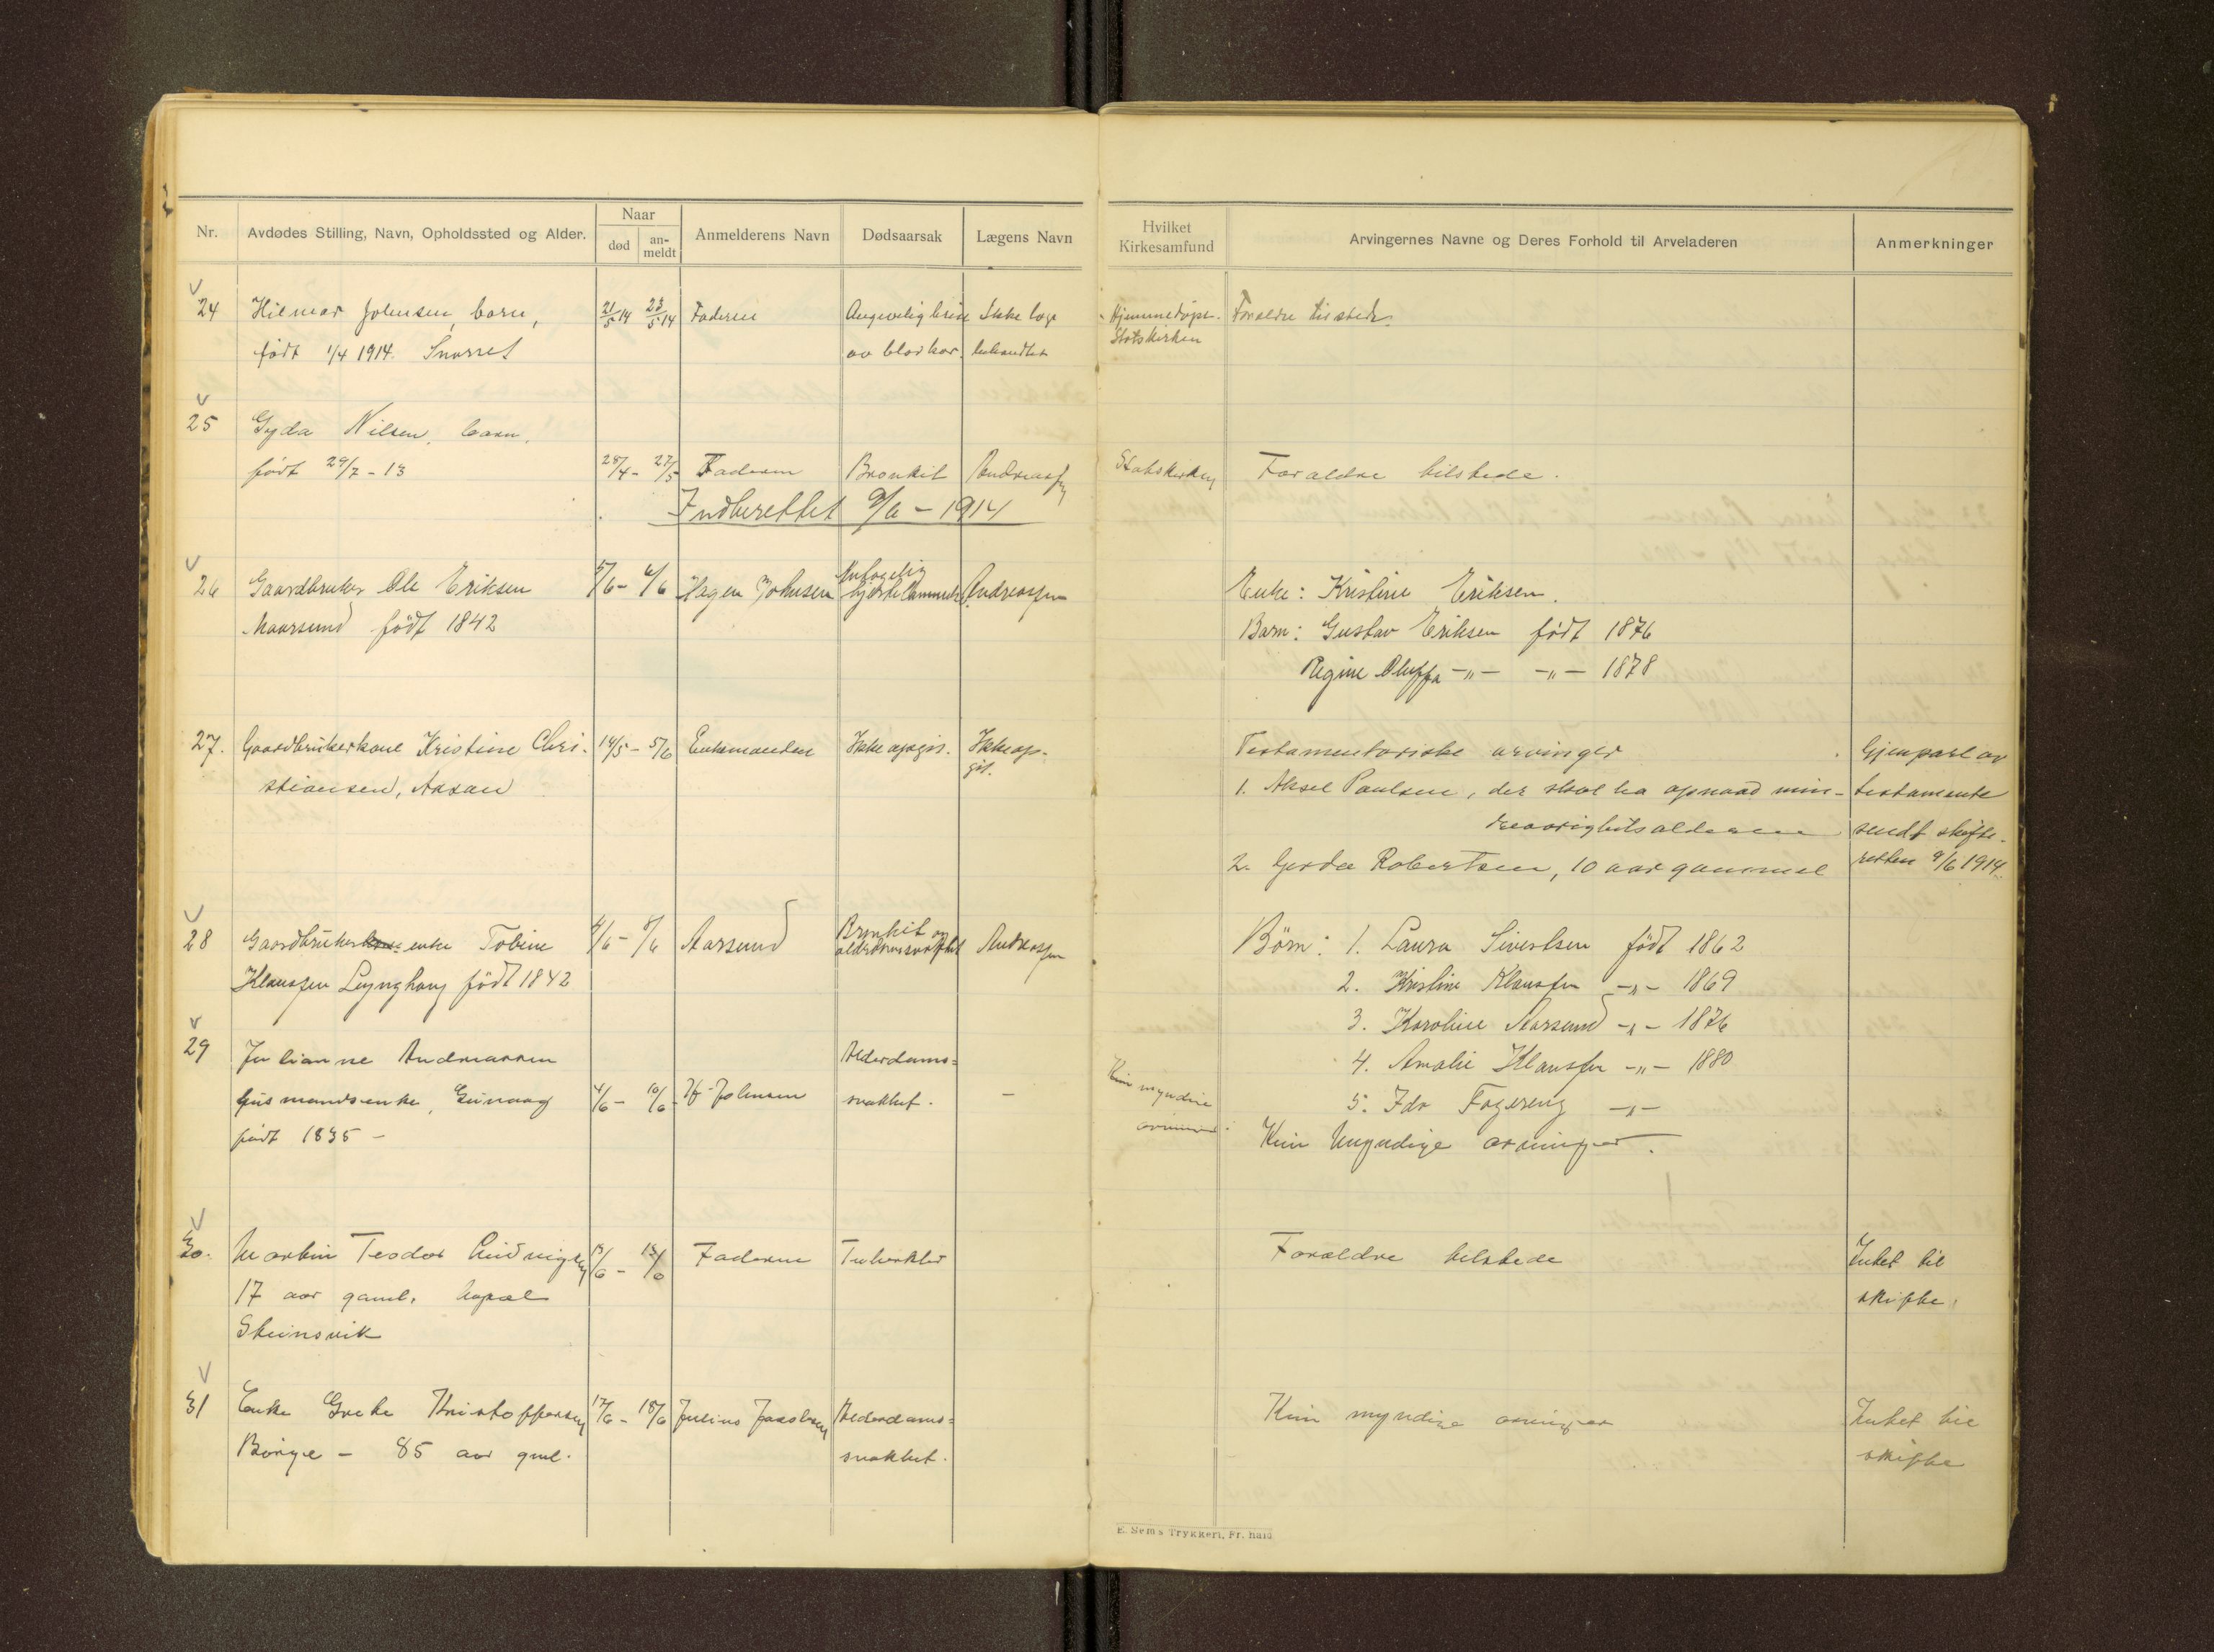 Nr.
Avdødes Stilling, Navn, Opholdssted og Alder.
Naar
død
an-
meldt
Anmelderens Navn
Dødsaarsak
Lægens Navn
Hvilket
Kirkesamfund
Arvingernes Navne og Deres Forhold til Arveladeren
Anmerkninger
24 Hilmar Johnsen, barn, 21/5 14 23/5 14 Faderen Ikke læge Hjemmedøpt Forældre tilstede.
født 1/4 1914. av behandlet Statskirken
25 Gyda Nilsen, barn,
født 29/7 - 13 28/4 - 27/5 Faderen Bronkit Andreassen Statskirken Forældre tilstede.
Indberettet 9/6 - 1914
26 Gaardbruker Ole Eriksen 5/6 - 6/6 Hagen Johnsen hjertelammelse Andreassen Enke: Kristine Eriksen.
født 1842 Barn: Gustav Eriksen født 1876
Regine Oluffa -"- -"- 1878
27. Gaardbrukerkone Kristine Chri- 14/5 - 5/6 Enkemanden Ikke opgit. Ikke op- Testamentariske arvinger Gjenpart av
stiansen, Aasan git. 1. Aksel Paulsen, der skal ha opnaad min- testamente
dreaarighetsalderen sendt skifte-
2. Gerda Robertsen, 10 aar gammel retten 9/6 1914.
28 Gaardbrukerkone enke Tobine 4/6 - 8/6 Aarsund Bronkit og Andreassen Børn: 1. Laura Sivertsen født 1862
Klaussen Lynghaug født 1842 alderdomssvakhet 2. Kristine Klaussen -"- 1869
3. Karoline Aarsund -"- 1876
29 Julianne Andreassen Alderdoms= 4. Amalie Klaussen -"- 1880
husmandsenke, 4/6 - 10/6 - Johnsen svakhet. - Kun myndige 5. Ida Fagereng -"-
født 1835 - arvinger. Kun Umyndige arvinger.
30. Martin Teodor Ludvigsen 13/6 - Faderen Tuberklos Forældre tilstede Intet til
17 aar gaml. skifte.
Steinsvik
31 Enke Grete Kristoffersen 17/6 - 18/6 Julius Jakobsen Alderdoms= Kun myndige arvinger Intet til
Börge - 85 aar gml. svakhet. skifte
E. Sem's Trykkeri, Fr. hald